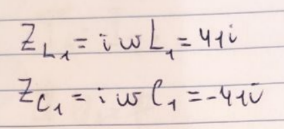 Z_{L_1} = i w L_1 = 41i
Z_{C_1} = i w C_1 = -41i